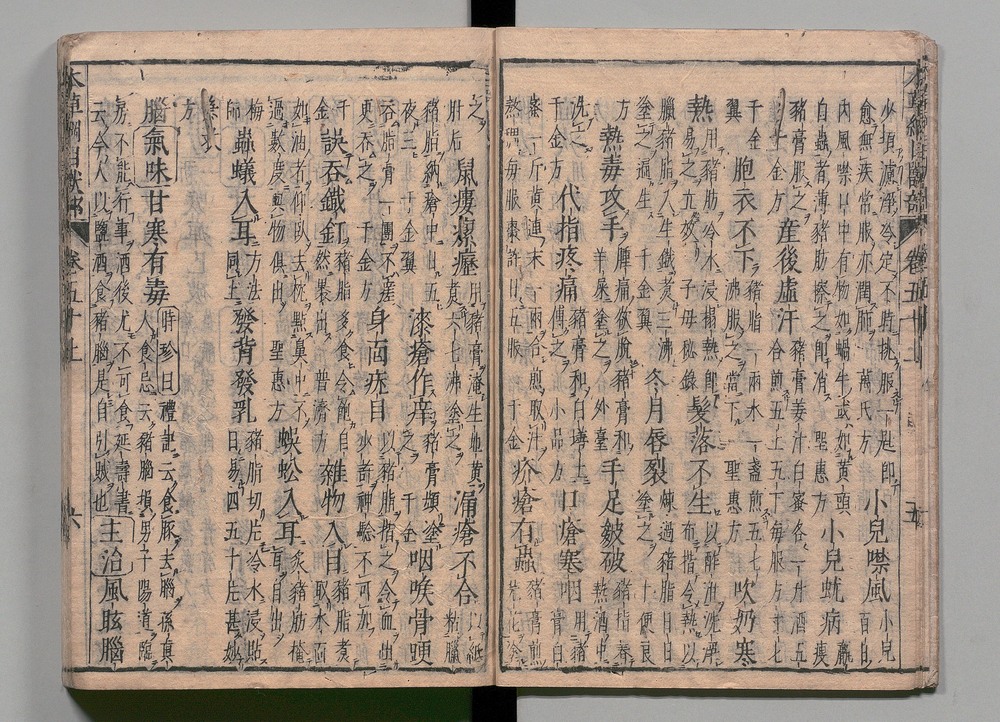 少頃濾淨冷定不時挑服一匙即
愈無疾常服亦潤肺 萬氏方
小兒噤風 小兒百日
內風噤口中有物如蝸牛或如黃頭
白蟲者薄豬肪擦之即消 聖惠方
小兒蚘病 羸瘦
豬膏服之 千金方
產後虛汗 豬膏姜汁白蜜各一升酒五
合煎五上五下每服方寸匕
千金翼
胞衣不下 豬脂一兩水一盞煎五七
沸服之當下 聖惠方
吹奶寒
熱 用豬肪冷水浸搨熱即
易之立效 子母秘錄
髮落不生 以酢泔洗淨
以布揩令熱以
臘豬脂入生鐵煮三沸
塗之遍生 千金翼
冬月唇裂 煉過豬脂日日
塗之 十便良
方
熱毒攻手 腫痛欲脫豬膏和
羊屎塗之 外臺
手足皴破 豬脂着
熱酒中
洗之 千金
代指疼痛 豬膏和白墡土
傅之 小品方
口瘡塞咽 用豬膏白
蜜一斤黃連末一兩合煎取汁
熬稠每服棗許日五服 千金
疥瘡有蟲 豬膏煎
芫花塗
之 肘后
鼠瘻瘰癧 用豬膏淹生地黃
煮六七沸塗之
漏瘡不合 以紙粘臘
豬脂納瘡中日五
夜三 千金翼
漆瘡作痒 豬膏頻塗
之 千金
咽喉骨哽
吞脂膏一團不瘥
更吞之 千金方
身面疣目 以豬脂揩之令血出
少許神驗不可加
千金
誤吞鐵釘 豬脂多食令飽自
然裹出 普濟方
雜物入目 豬脂煮
取水面
如油者仰臥去枕點鼻中不
過數度與物俱出 聖惠方
蜈蚣入耳 炙豬肪掩
耳自出
梅師
蟲蟻入耳 方法同上
發背發乳 豬脂切片冷水浸貼
日易四五十片甚妙
急救方
腦氣味甘寒有毒 時珍曰禮記云食豚去腦孫真
人食忌云豬腦損男子陽道臨
房不能行事酒後尤不可食延壽書
云今人以鹽酒食豬腦是自引賊也
主治風眩腦
本草綱目獸部 卷五十上 六